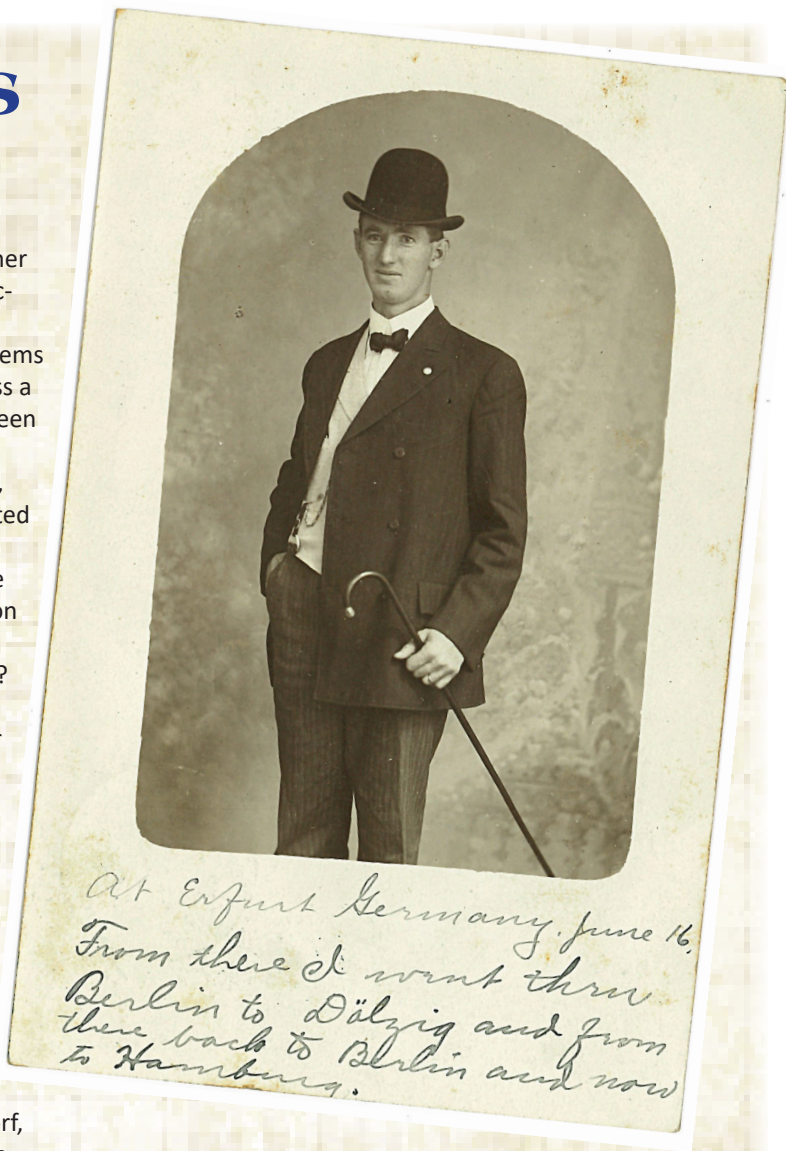 s
ems
s a
een
ted
on
?
At Erfurt Germany. June 16.
From there I went thru
Berlin to Dölzig and from
there back to Berlin and now
to Hamburg.
rf,